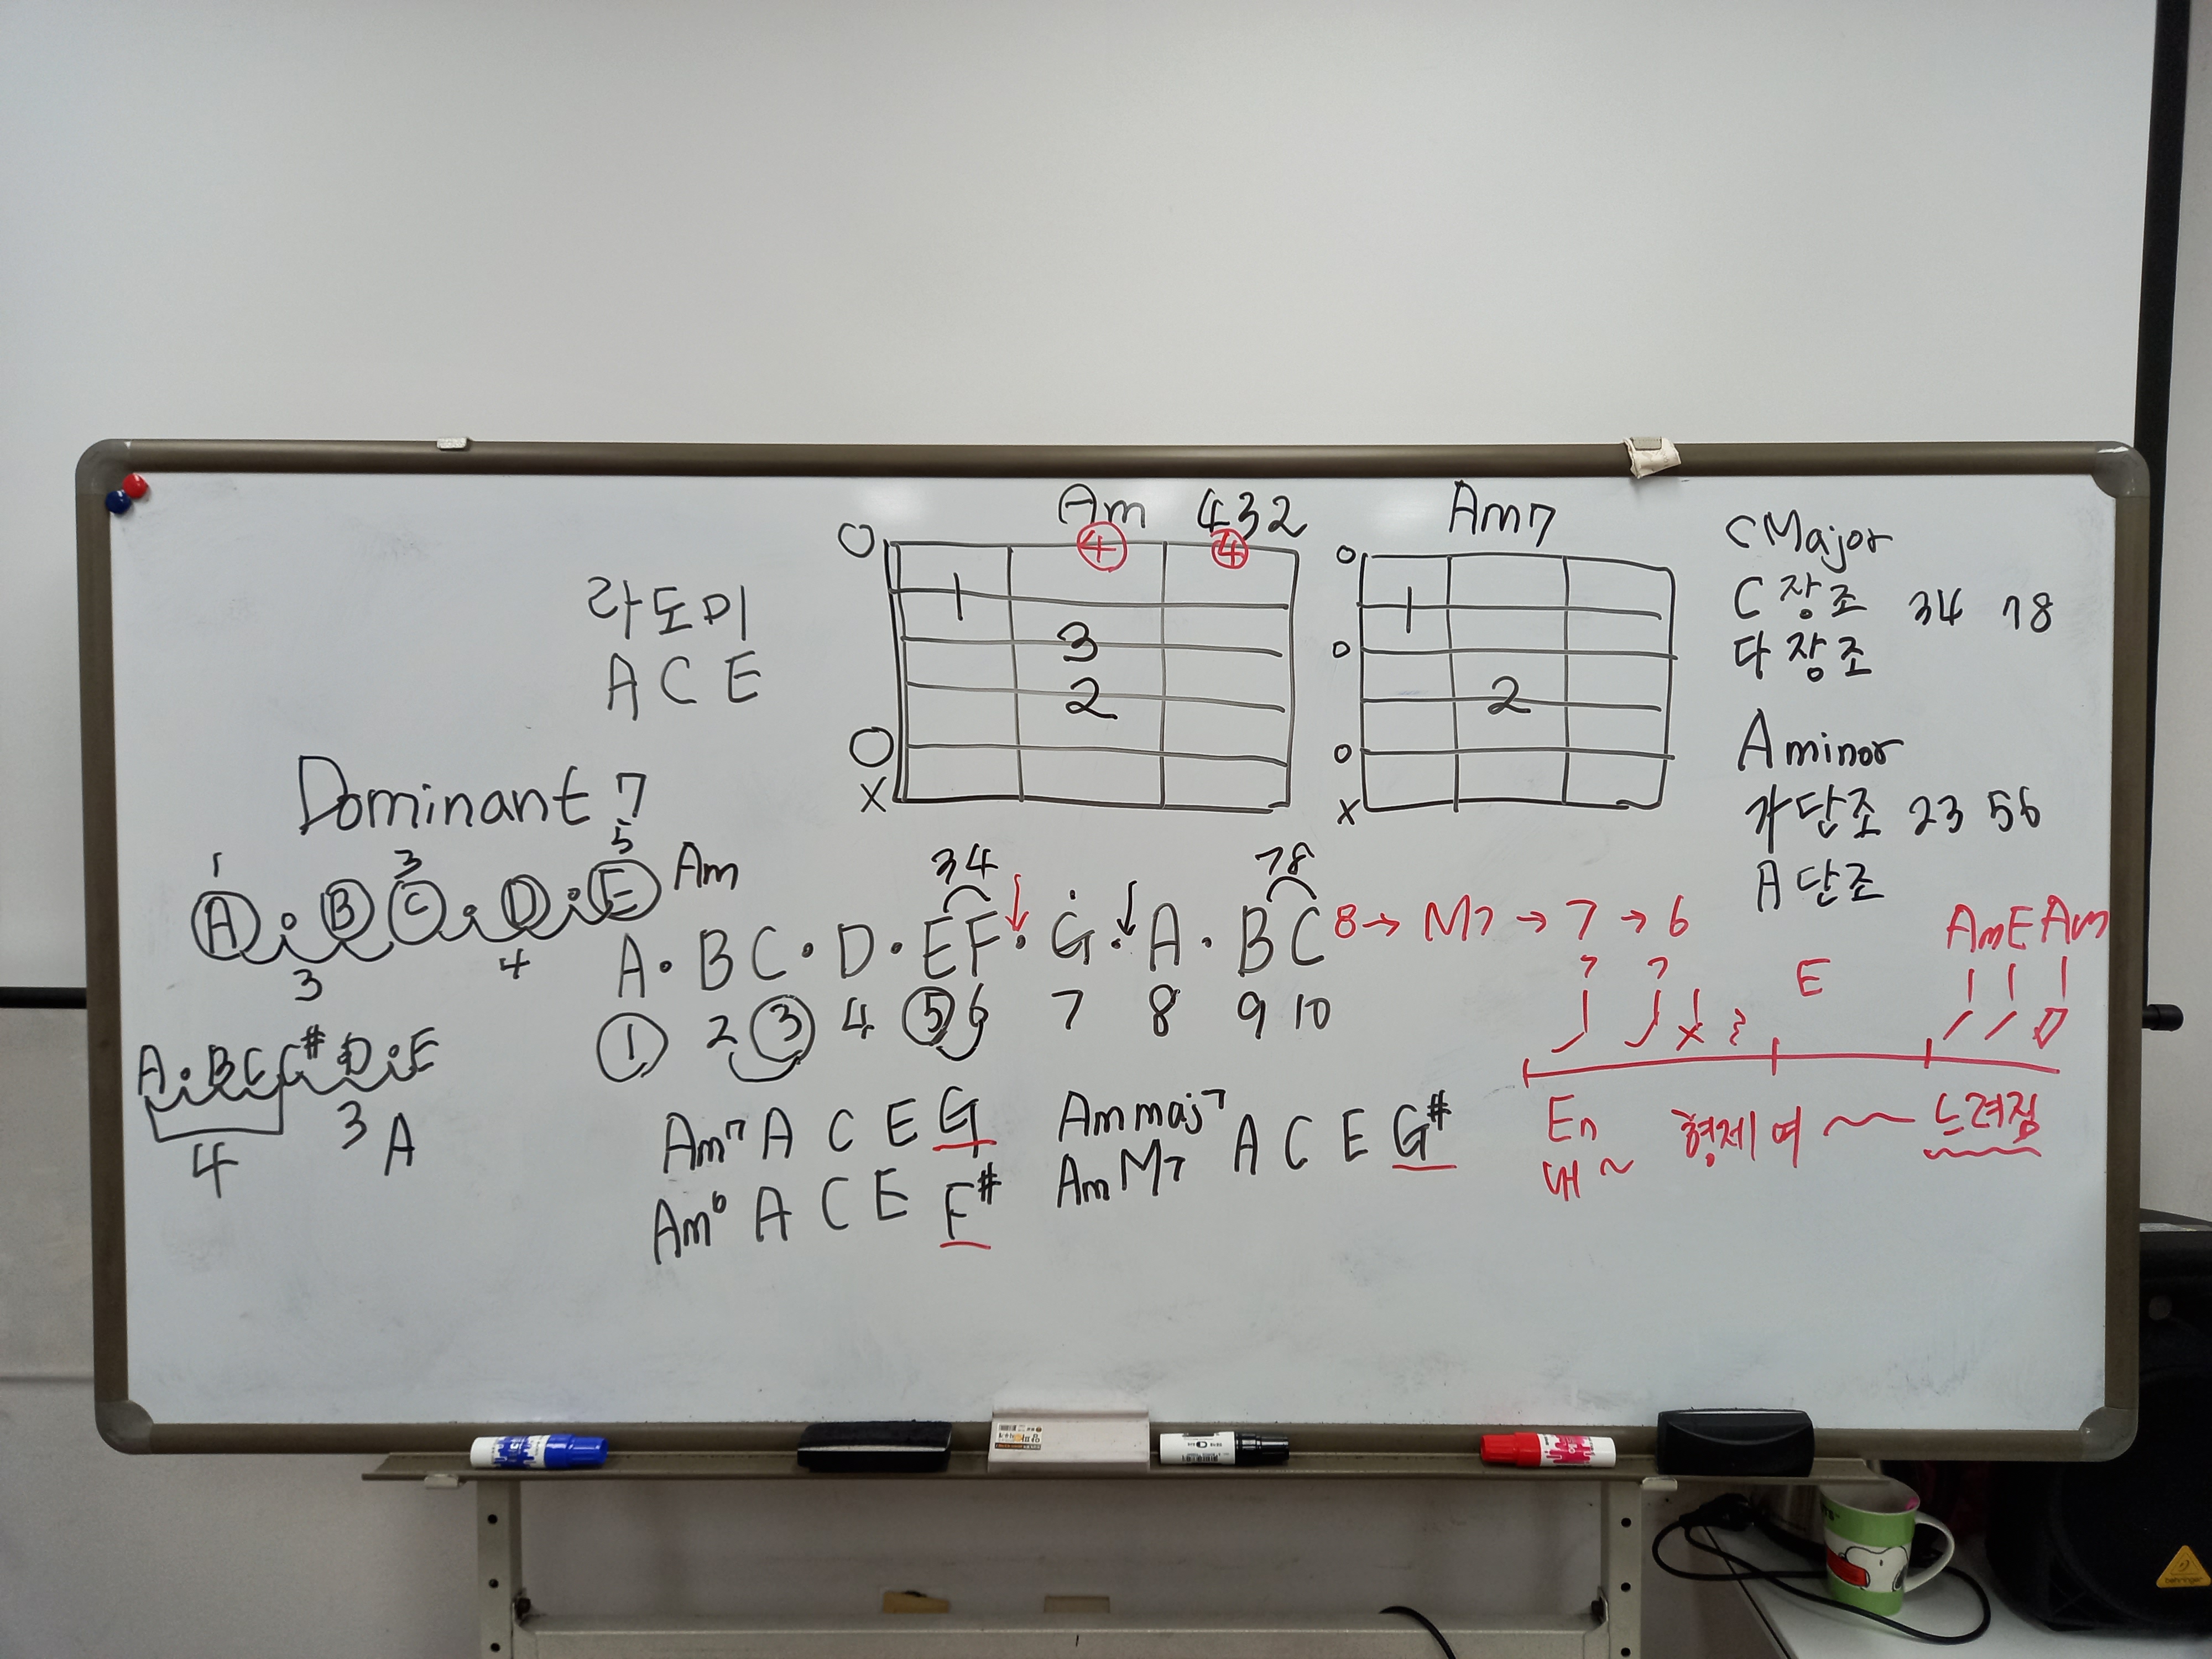 Am 432
④ ④
O
1
3
2
O
X
Am7
o
1
o
2
o
x
C Major
C 장조 34 78
다장조
A minor
가단조 23 56
A 단조
라도미
A C E
Dominant 7
1 3 5
A · B C · D · E Am
3 4
A · B C C# D · E
4 3 A
34 78
A · B C · D · E F · G · A · B C
① 2 ③ 4 ⑤ 6 7 8 9 10
8 → M7 → 7 → 6
Am7 A C E G
Am6 A C E F#
Am maj7
Am M7 A C E G#
Am E Am
? ? E
E7 형제여 ~ 느려짐
내 ~
behringer